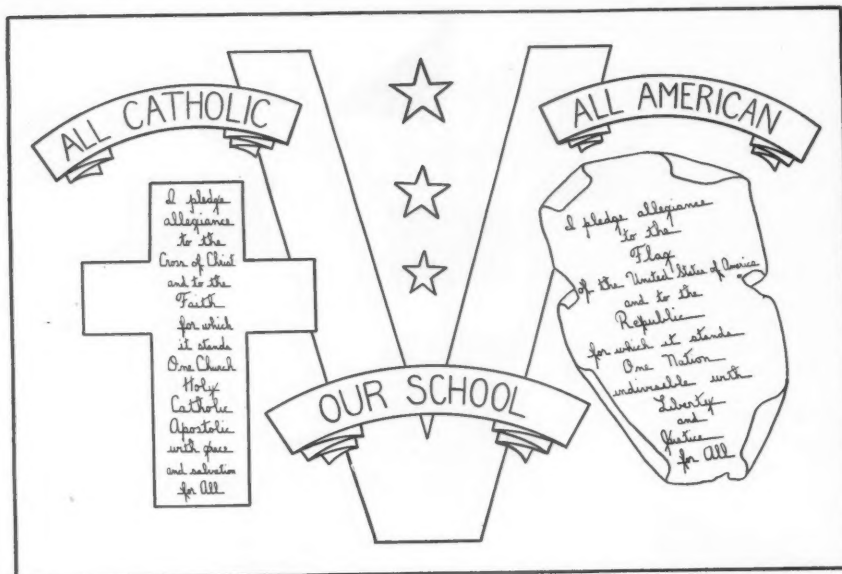 ALL CATHOLIC
I pledge
allegiance
to the
Cross of Christ
and to the
Faith
for which
it stands
One Church
Holy
Catholic
Apostolic
with grace
and salvation
for All
OUR SCHOOL
ALL AMERICAN
I pledge allegiance
to the
Flag
of the United States of America
and to the
Republic
for which it stands
One Nation
indivisible with
Liberty
and
Justice
for All